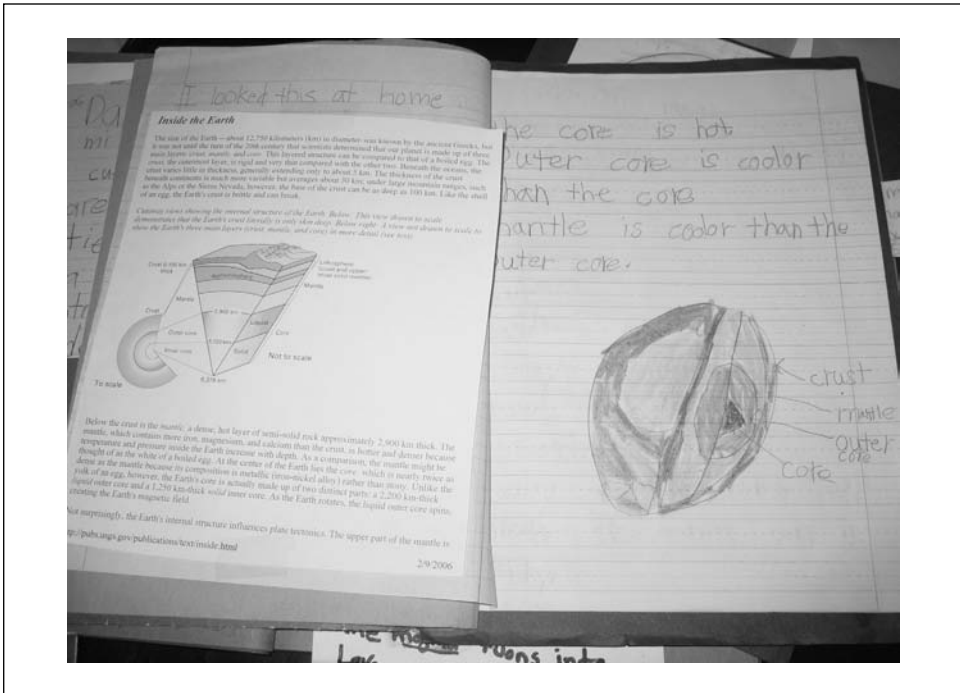 I looked this at home.
Inside the Earth
The size of the Earth — about 12,750 kilometers (km) in diameter-was known by the ancient Greeks, but
it was not until the turn of the 20th century that scientists determined that our planet is made up of three
main layers: crust, mantle, and core. This layered structure can be compared to that of a boiled egg. The
crust, the outermost layer, is rigid and very thin compared with the other two. Beneath the oceans, the
crust varies little in thickness, generally extending only to about 5 km. The thickness of the crust
beneath continents is much more variable but averages about 30 km; under large mountain ranges, such
as the Alps or the Sierra Nevada, however, the base of the crust can be as deep as 100 km. Like the shell
of an egg, the Earth's crust is brittle and can break.
Cutaway views showing the internal structure of the Earth. Below: This view drawn to scale
demonstrates that the Earth's crust literally is only skin deep. Below right: A view not drawn to scale to
show the Earth's three main layers (crust, mantle, and core) in more detail (see text).
Crust 0-100 km
thick
Lithosphere
(crust and upper-
most solid mantle)
Asthenosphere
Mantle
Mantle
Crust
2,900 km
Liquid
Outer core
Core
5,100 km
Inner core
Solid
Not to scale
6,378 km
To scale
Below the crust is the mantle, a dense, hot layer of semi-solid rock approximately 2,900 km thick. The
mantle, which contains more iron, magnesium, and calcium than the crust, is hotter and denser because
temperature and pressure inside the Earth increase with depth. As a comparison, the mantle might be
thought of as the white of a boiled egg. At the center of the Earth lies the core, which is nearly twice as
dense as the mantle because its composition is metallic (iron-nickel alloy) rather than stony. Unlike the
yolk of an egg, however, the Earth's core is actually made up of two distinct parts: a 2,200 km-thick
liquid outer core and a 1,250 km-thick solid inner core. As the Earth rotates, the liquid outer core spins,
creating the Earth's magnetic field.
Not surprisingly, the Earth's internal structure influences plate tectonics. The upper part of the mantle is
http://pubs.usgs.gov/publications/text/inside.html
2/9/2006
the core is hot
Outer core is coolor
than the core
mantle is coolor than the
outer core.
crust
mantle
outer
core
core
the magma
into